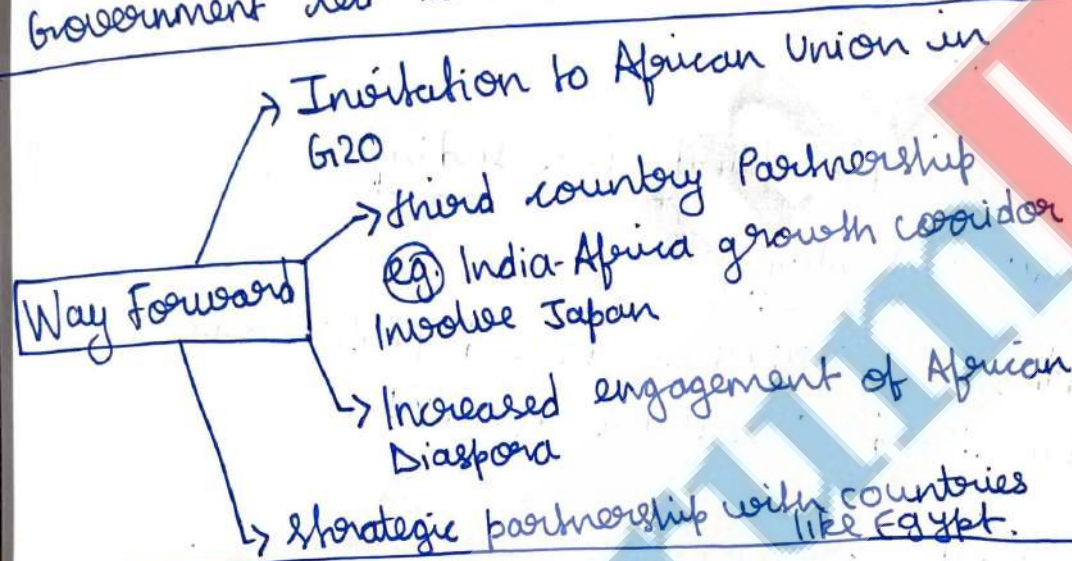 Government
Invitation to African Union in
G20
third country Partnership
eg. India-Africa growth corridor
Involve Japan
Way Forward
Increased engagement of African
Diaspora
Strategic partnership with countries
like Egypt.